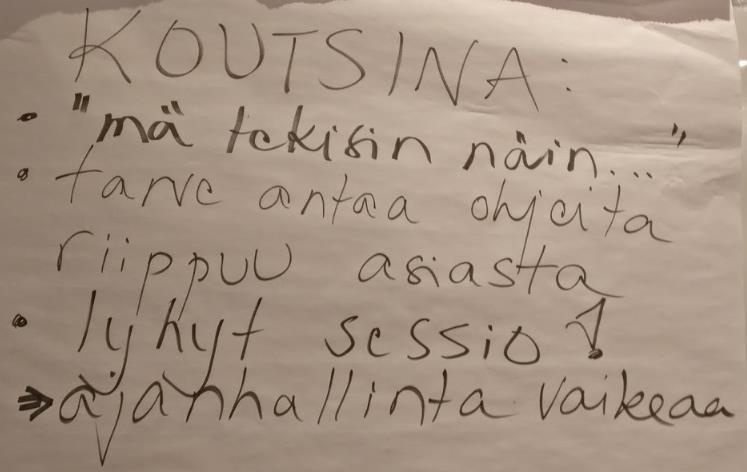 KOUTSINA:
• "mä tekisin näin..."
• tarve antaa ohjeita
riippuu asiasta
• lyhyt sessio!
⇒ ajanhallinta vaikeaa